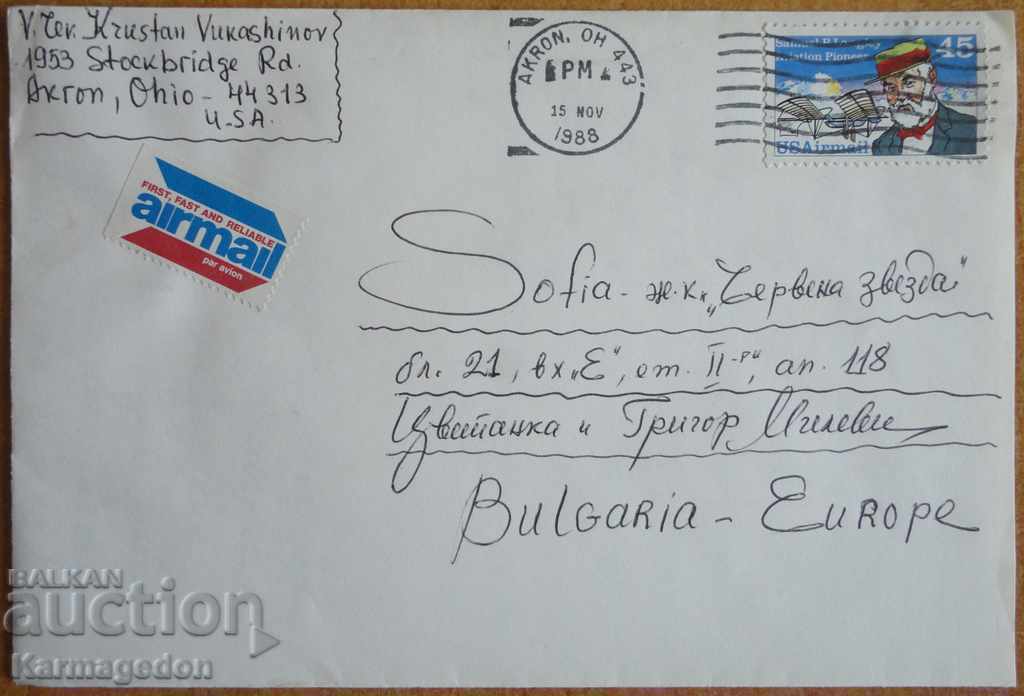 V. Tev. Krustan Vukashinov
1953 Stockbridge Rd.
Akron, Ohio - 44313
U.SA.
AKRON, OH 443
PM
15 NOV
1988
Samuel P. Langley
Aviation Pioneer
45
USAirmail
FIRST, FAST AND RELIABLE
airmail
par avion
Sofia - ж.к. „Червена звезда"
бл. 21, вх „Е", ет. II-ри, ап. 118
Цветанка и Григор
BULGARIA - EUROPE
BALKAN
auction
Karmagedon